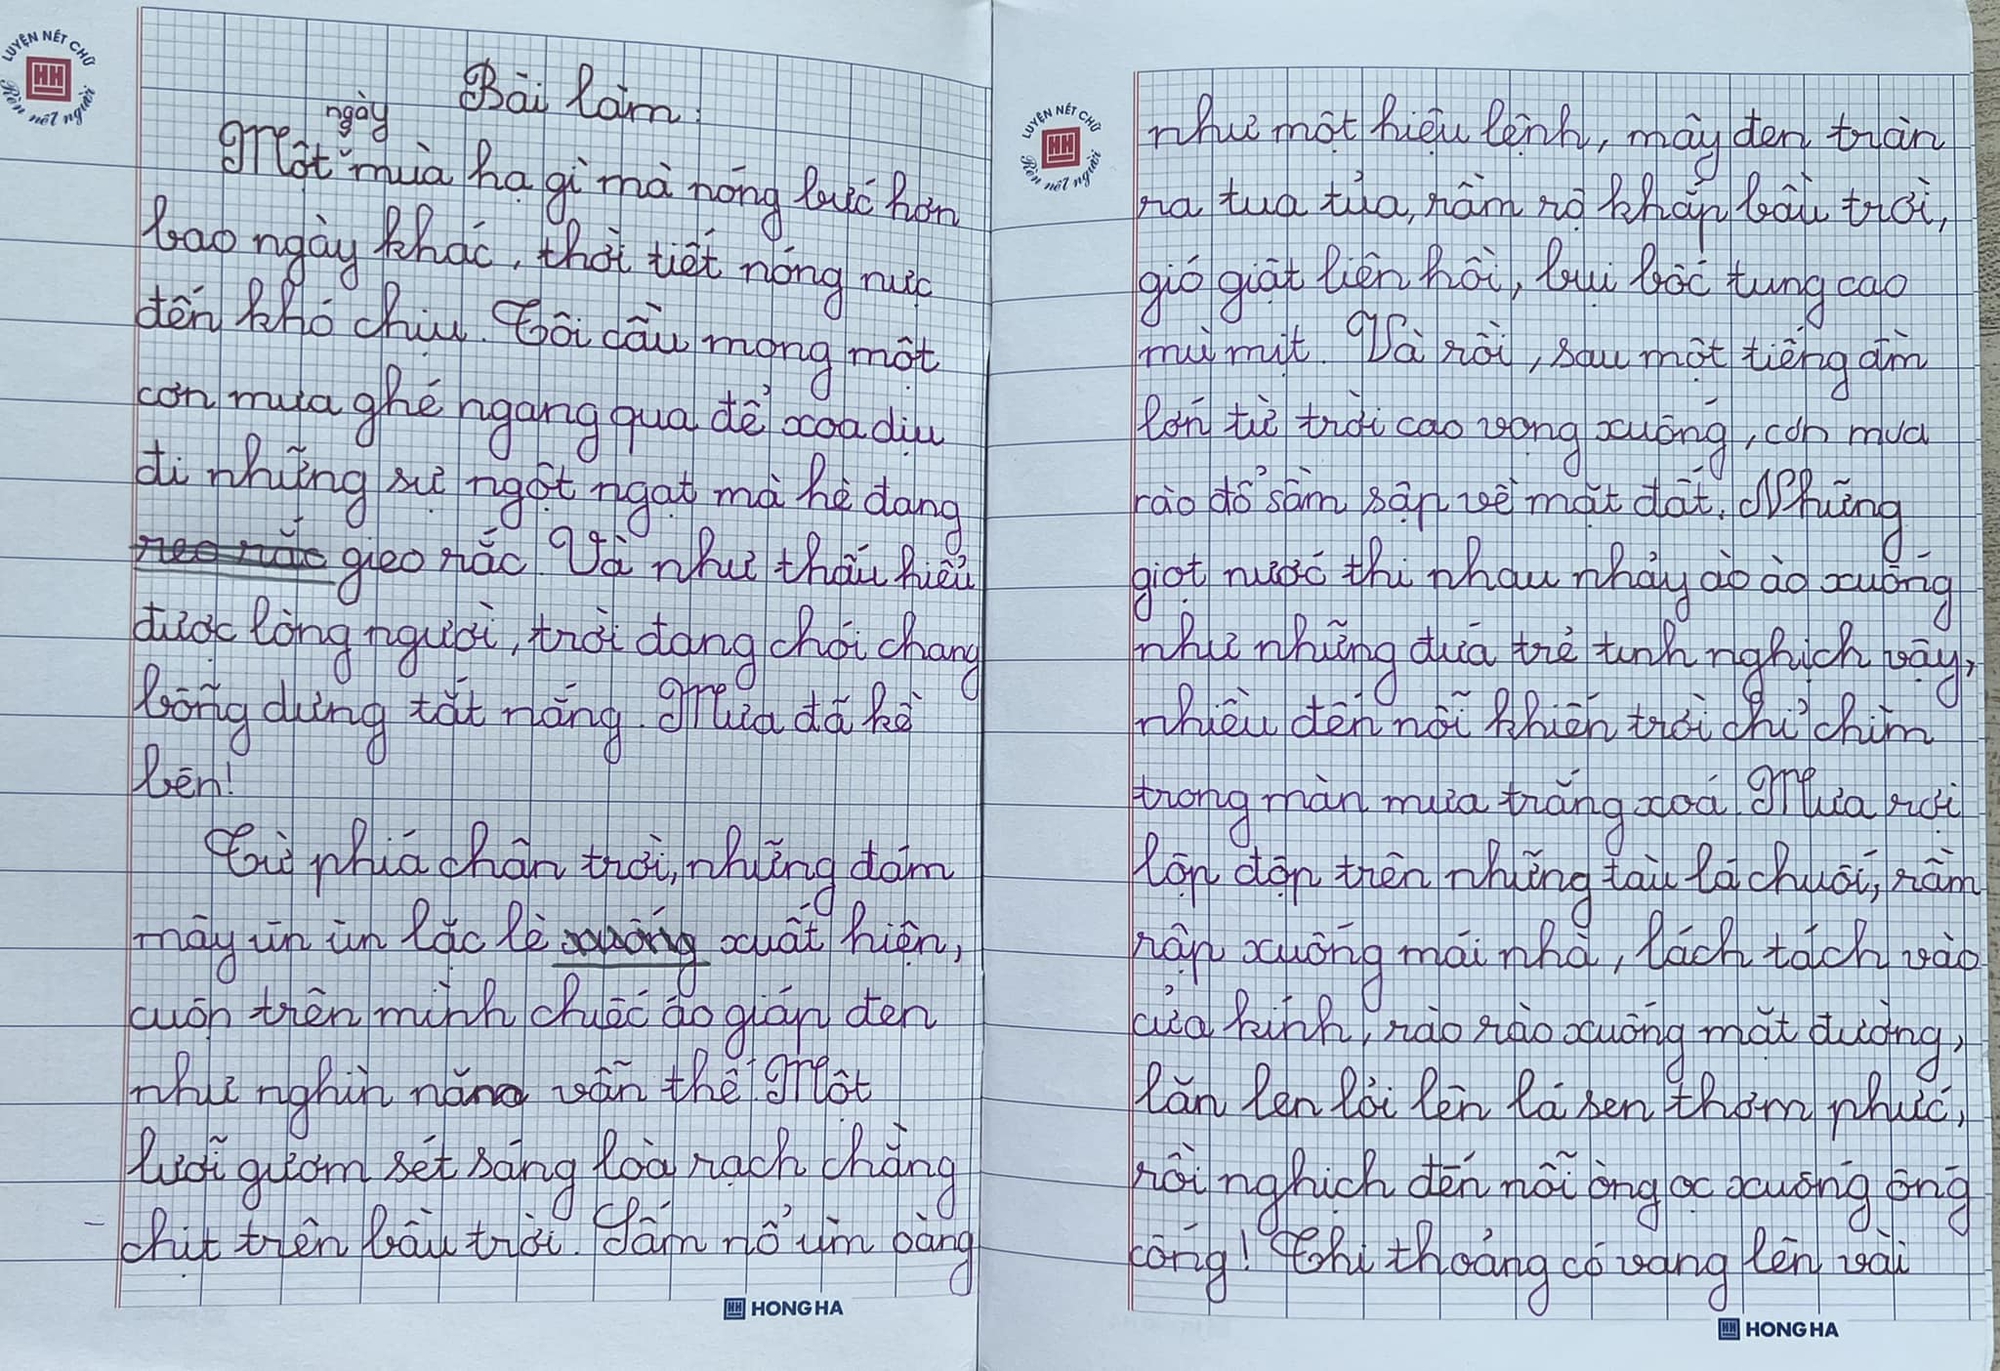 LUYỆN NÉT CHỮ
HH
Rèn nết người
Bài làm:
ngày
Một mùa hạ gì mà nóng bức hơn
bao ngày khác, thời tiết nóng nực
đến khó chịu. Tôi cầu mong một
cơn mưa ghé ngang qua để xoa dịu
đi những sự ngột ngạt mà hè đang
reo rắc gieo rắc. Và như thấu hiểu
được lòng người, trời đang chói chang
bỗng dưng tắt nắng. Mưa đã kề
bên!
Từ phía chân trời, những đám
mây ùn ùn lặc lè xuống xuất hiện,
cuộn trên mình chiếc áo giáp đen
như nghìn năm vẫn thế. Một
lưỡi gươm sét sáng loà rạch chằng
chịt trên bầu trời. Sấm nổ ùm oàng
HH HONG HA
LUYỆN NÉT CHỮ
HH
Rèn nết người
như một hiệu lệnh, mây đen tràn
ra tua tủa, rầm rộ khắp bầu trời,
gió giật liên hồi, bụi bốc tung cao
mù mịt. Và rồi, sau một tiếng ầm
lớn từ trời cao vọng xuống, cơn mưa
rào đổ sầm sập về mặt đất. Những
giọt nước thi nhau nhảy ào ào xuống
như những đứa trẻ tinh nghịch vậy,
nhiều đến nỗi khiến trời chỉ chìm
trong màn mưa trắng xoá. Mưa rơi
lộp độp trên những tàu lá chuối, rầm
rập xuống mái nhà, lách tách vào
cửa kính, rào rào xuống mặt đường,
lăn len lỏi lên lá sen thơm phức,
rồi nghịch đến nỗi òng ọc xuống ống
cống! Thi thoảng có vang lên vài
HH HONG HA